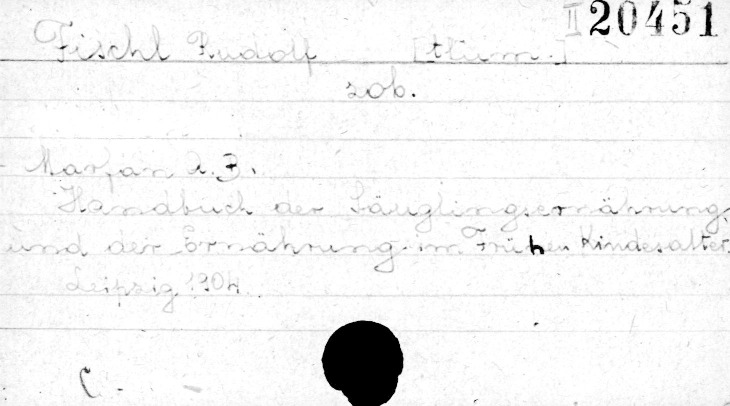 II 20451
Fischl Rudolf [tłum.]
zob.
Marfan A. B.
Handbuch der Säuglingsernährung
und der Ernährung im Frühen Kindesalter.
Leipzig 1904
C.